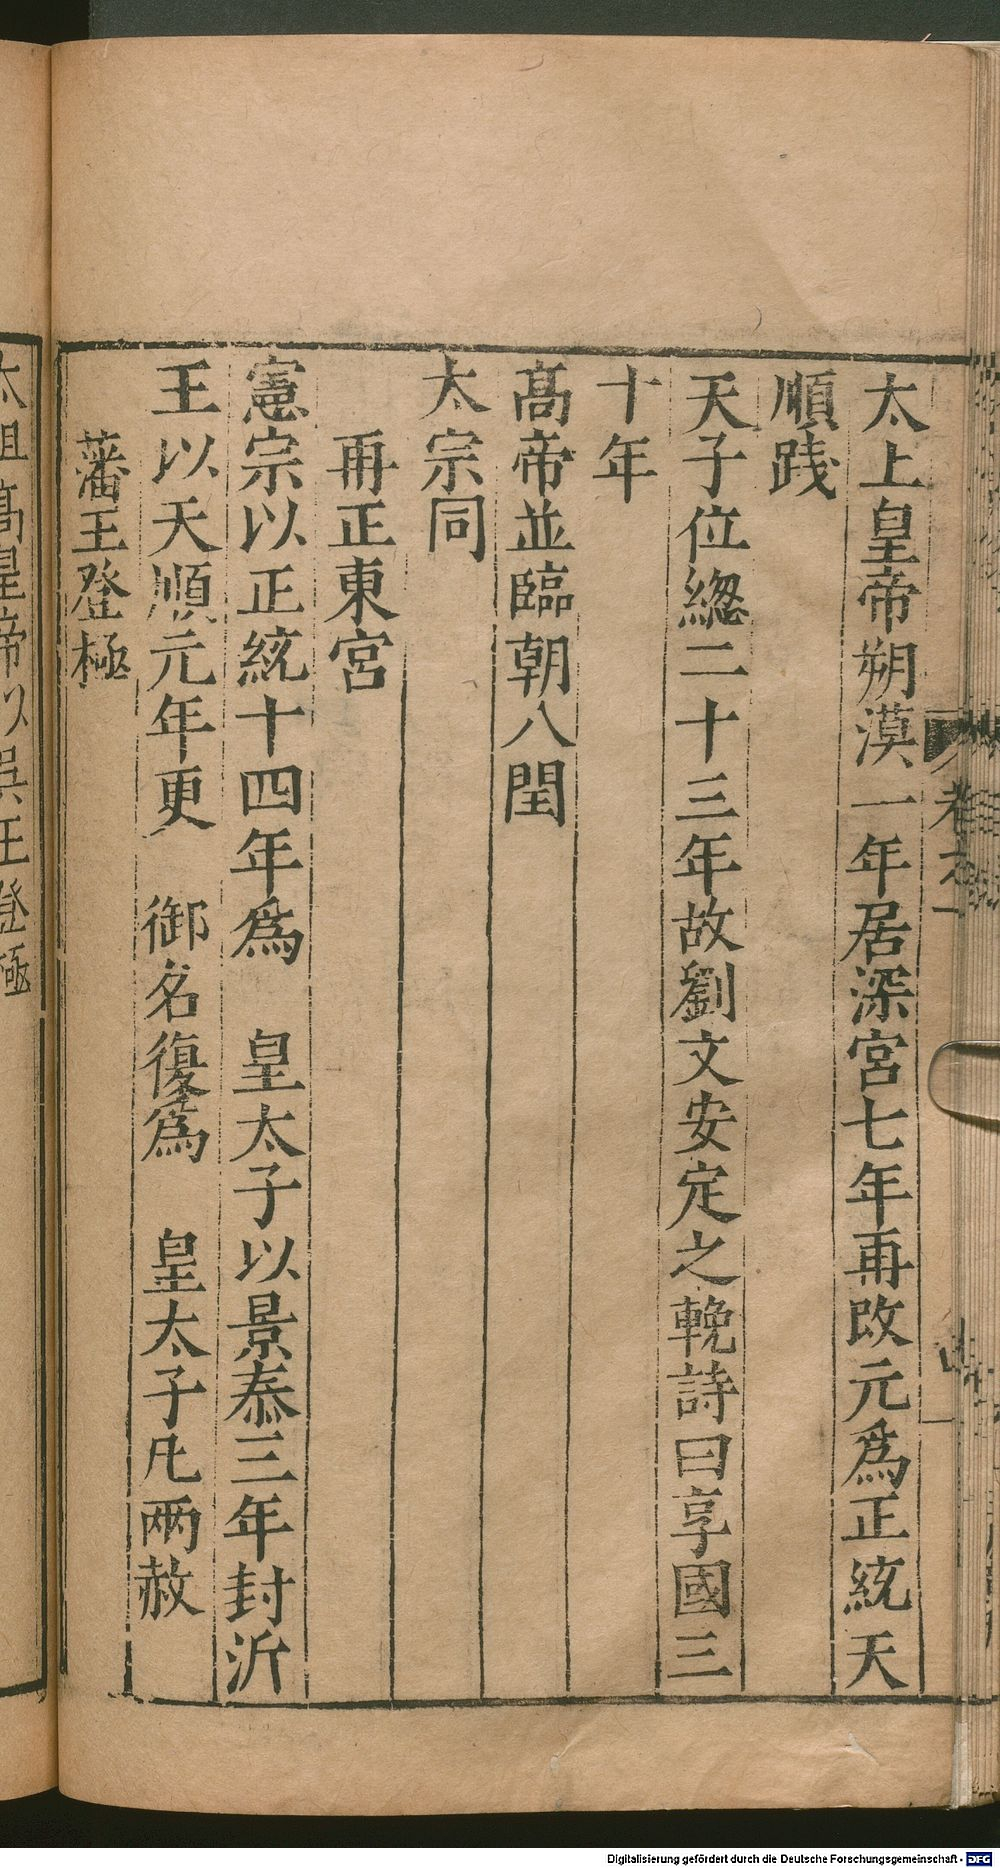 太上皇帝朔漠一年居深宮七年再改元爲正統天
順踐
天子位緫二十三年故劉文安定之輓詩曰享國三
十年
髙帝並臨朝八閏
太宗同
再正東宮
憲宗以正統十四年爲　皇太子以景泰三年封沂
王以天順元年更　御名復爲　皇太子凡兩赦
藩王登極
太祖髙皇帝以吳王登極
卷之一
Digitalisierung gefördert durch die Deutsche Forschungsgemeinschaft - DFG